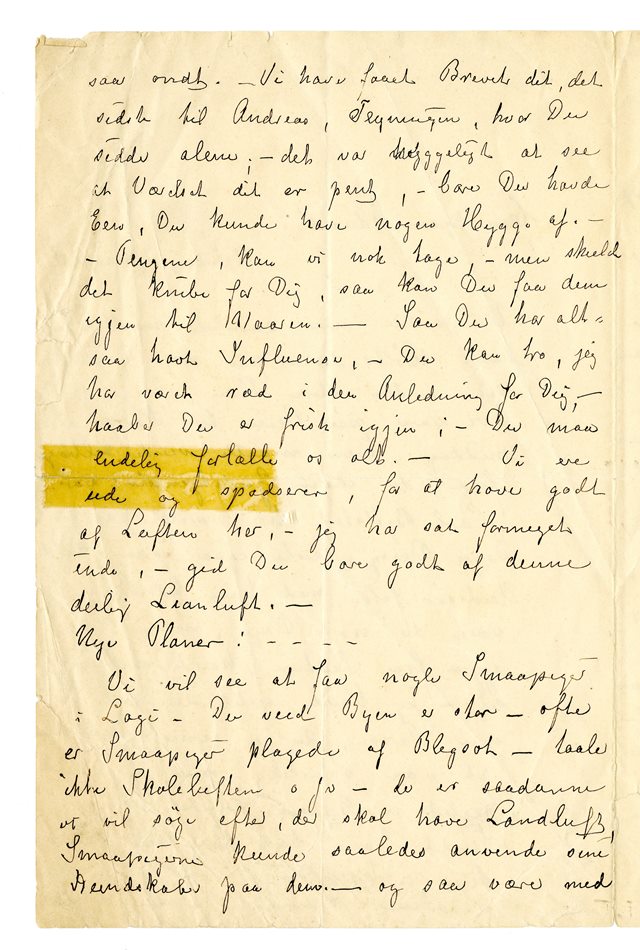 saa ondt. – Vi have faaet Brevet dit, det
sidste til Andreas, Tegningen, hvor Du
sidder alene; – det var hyggeligt at see
at Værelset dit er pent, – bare Du havde
Een, Du kunde have nogen Hygge af. –
– Pengene, kan vi nok tage, – men skulde
det knibe for Dig, saa kan Du faa dem
igjen til Vaaren. – Saa Du har alt-
saa havt Influenza, – Du kan tro, jeg
har været ræd i den Anledning for Dig, –
haaber Du er frisk igjen; – Du maa
endelig fortælle os alt. – Vi ere
ude og spadserer, for at have godt
af Luften her, – jeg har sat formeget
inde, – gid Du bare godt af denne
deilig Lianluft. –
Nye Planer: – – – –
Vi vil see at faa nogle Smaapiger
i Logi – Du veed Byen er stor – ofte
er Smaapiger plagede af Blegsot – taale
ikke Skoleluften o s v – de er saadanne
vi vil søge efter, der skal have Landluft,
Smaapigerne kunde saaledes anvende sine
Kundskaber paa dem. – og saa være med